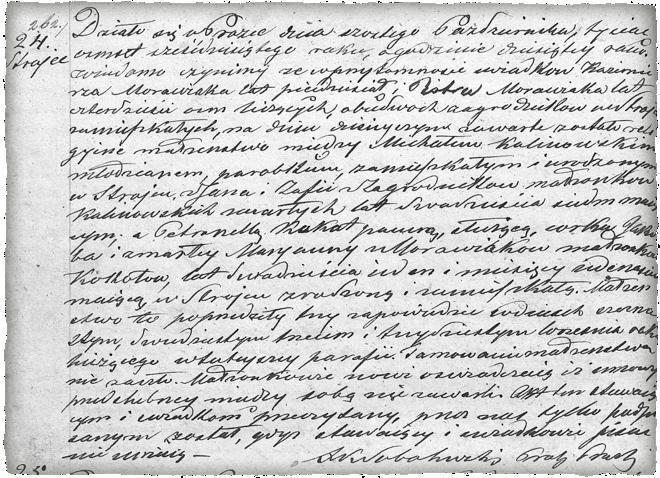 262.
24.
Strojec
Działo się w Prazce dnia szóstego Października, tysiąc
ośmset sześdziesiątego roku, o godzinie dziesiątej rano
wiadomo czynimy że w przytomności świadków Kazimie-
rza Morawiaka lat piedziesiąt, i Piotra Morawiaka lat
czterdzieści ośm liczących, obudwóch zagrodników we Stroj-
zamieszkałych, na dniu dzisiejszym zawarte zostało reli-
gijne małżeństwo między Michałem Kalinowskim
młodzianem, parobkiem, zamieszkałym i urodzonym
w Strojcu, z Jana i Zofii Zagrodników małżonków
Kalinowskich zmarłych lat dwadzieścia siedm mają-
cym, a Petronellą Kokot panną, służącą, córką
ba i zmarłej Maryanny z Morawiaków małżonków
Kokotów, lat dwadzieścia jeden i miesięcy jedenaście
mającą, w Strojcu zrodzoną i zamieszkałą. Małżeń-
stwo to poprzedziły trzy zapowiedzie w dniach szesna-
stym, dwudziestym trzecim i trzydziestym Września roku
bieżącego w tutejszej parafii. Tamowanie małżeństwa
nie zaszło. Małżonkowie nowi oświadczają iż umowy
przedślubnej między sobą nie zawarli. Akt ten stawają-
cym i świadkom przeczytany, przez nas tylko podpi-
sanym został, gdyż stawający i świadkowie pisać
nie umieją —
25.